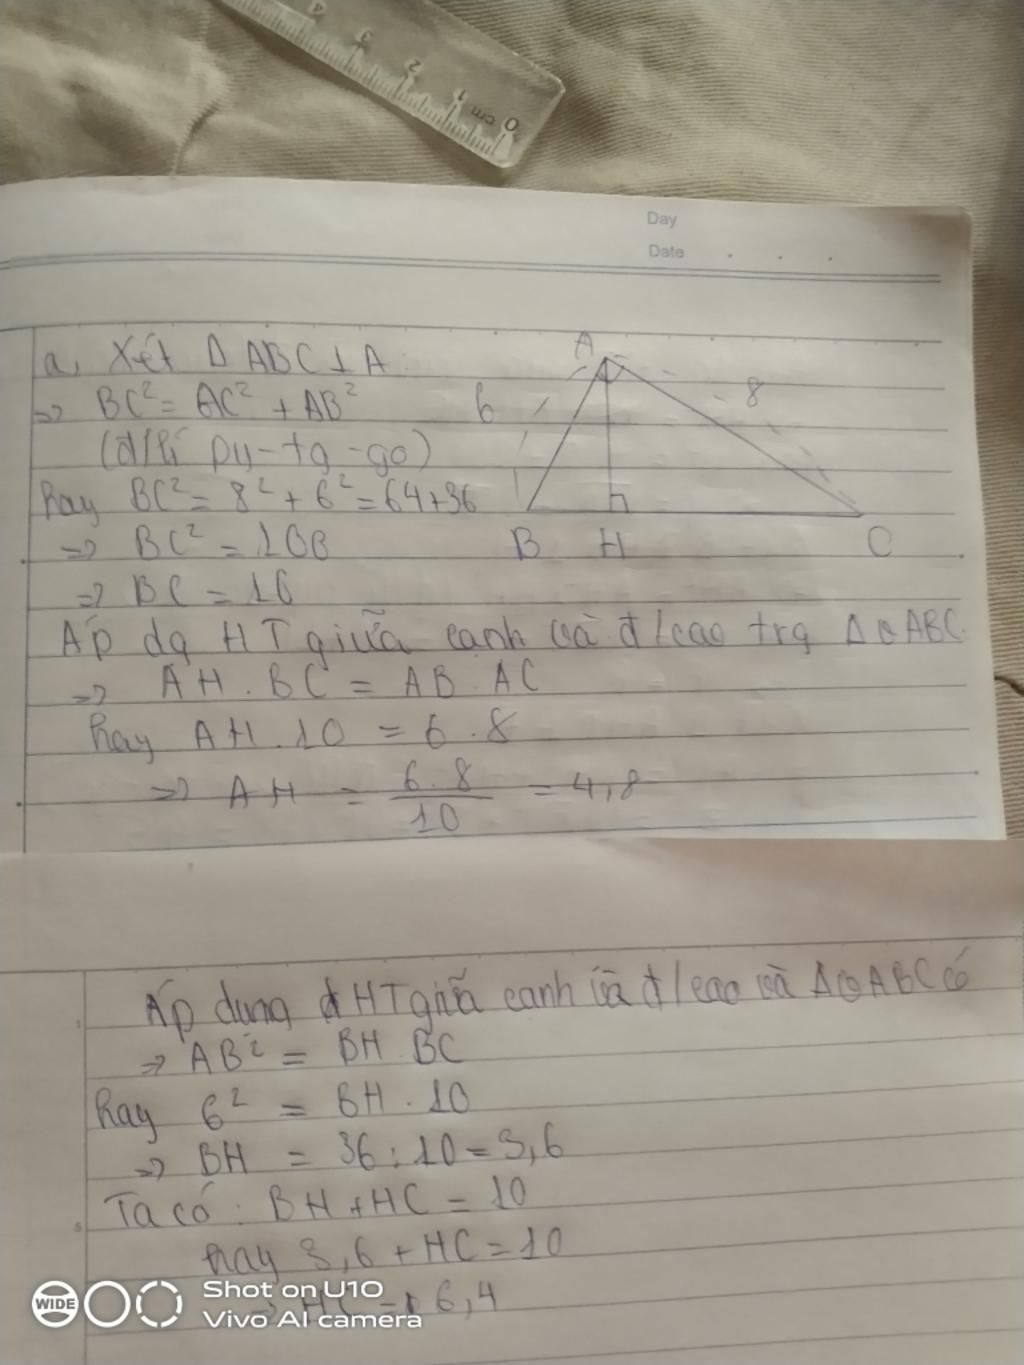 0 cm 1 2 3 4
Day
Date
a, Xét Δ ABC ⊥ A
A
⇒ BC² = AC² + AB²
6
8
(đ/lí py-ta-go)
hay BC² = 8² + 6² = 64+36
⇒ BC² = 100
B H C
⇒ BC = 10
Áp dg HT giữa cạnh và đ/cao trg Δ ABC
⇒ AH . BC = AB . AC
hay AH . 10 = 6 . 8
⇒ AH = 6.8/10 = 4,8
Áp dụng HT giữa cạnh và đ/cao và Δ ABC có
⇒ AB² = BH . BC
hay 6² = BH . 10
⇒ BH = 36 : 10 = 3,6
Ta có : BH + HC = 10
hay 3,6 + HC = 10
⇒ HC = 6,4
WIDE
Shot on U10
Vivo AI camera